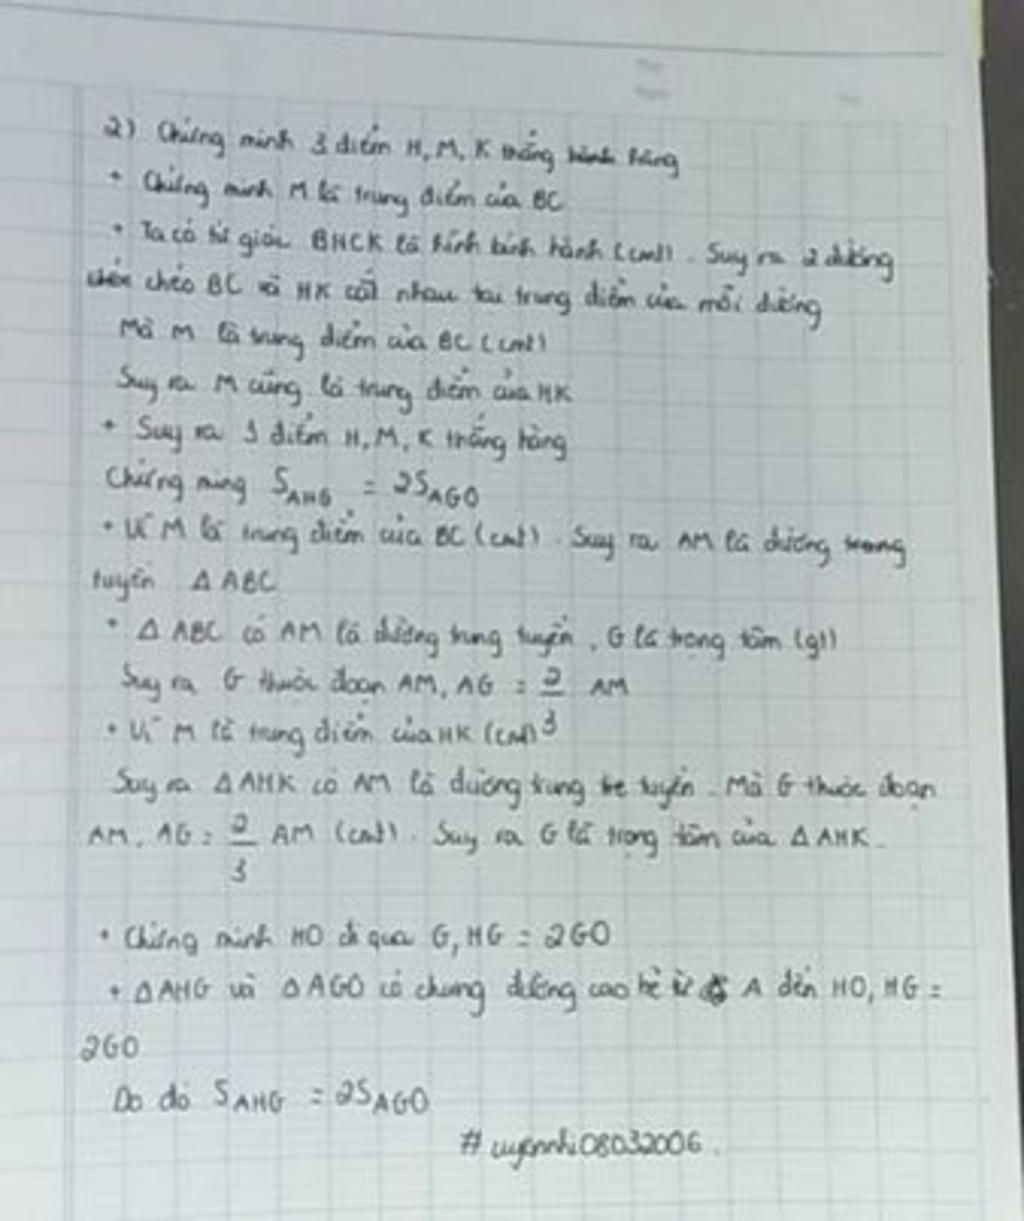 2) Chứng minh 3 điểm H, M, K thẳng hàng
+ Chứng minh M là trung điểm của BC
+ Ta có tứ giác BHCK là hình bình hành (cmt). Suy ra 2 đường
chéo BC và HK cắt nhau tại trung điểm của mỗi đường
Mà M là trung điểm của BC (cmt)
Suy ra M cũng là trung điểm của HK
+ Suy ra 3 điểm H, M, K thẳng hàng
Chứng ming S_AHG = 2S_AGO
+ Vì M là trung điểm của BC (cmt). Suy ra AM là đường trung
tuyến Δ ABC
+ Δ ABC có AM là đường trung tuyến, G là trọng tâm (gt)
Suy ra G thuộc đoạn AM, AG = 2/3 AM
+ Vì M là trung điểm của HK (cmt)
Suy ra Δ AHK có AM là đường trung tuyến. Mà G thuộc đoạn
AM, AG = 2/3 AM (cmt). Suy ra G là trọng tâm của Δ AHK.
+ Chứng minh HO đi qua G, HG = 2GO
+ Δ AHG và Δ AGO có chung đường cao kẻ từ A đến HO, HG =
2GO
Do đó S_AHG = 2S_AGO
# uyennhi08032006.